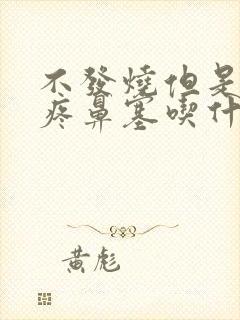 不發燒但是
疼鼻塞喫什
黃彪